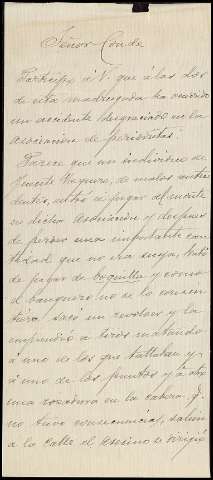 Señor Conde
Participo á V. que á las dos
de esta madrugada ha ocurrido
un accidente desgraciado en la
Asociacion de periodistas.
Parece que un individuo de
Fuente Vaqueros, de malos antece
dentes, entró a jugar al monte
en dicha Asociacion y despues
de perder una importante can
tidad que no era suya, trató
de jugar de boquilla y como
el banquero no se lo consin
tiera sacó un revolver y la
emprendió a tiros matando
á uno de los que tallaban y
á uno de los puntos y á otro
una rozadura en la cabeza q.
no tuvo consecuencias, salió
a la calle el asesino se dirigió